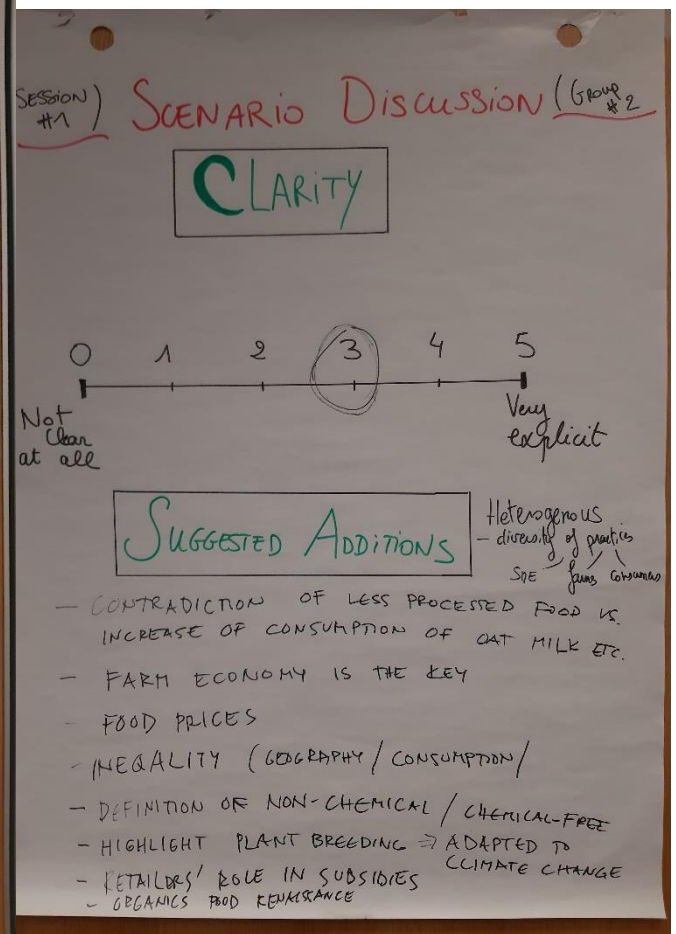 SESSION #1) SCENARIO DISCUSSION (GROUP #2
CLARITY
0 1 2 3 4 5
Not Clear at all
Very explicit
SUGGESTED ADDITIONS
Heterogenous
- diversity of practices
farms consumers
- CONTRADICTION OF LESS PROCESSED FOOD VS.
INCREASE OF CONSUMPTION OF OAT MILK ETC.
- FARM ECONOMY IS THE KEY
- FOOD PRICES
- INEQALITY (GEOGRAPHY / CONSUMPTION /
- DEFINITION OF NON-CHEMICAL / CHEMICAL-FREE
- HIGHLIGHT PLANT BREEDING => ADAPTED TO
CLIMATE CHANGE
- RETAILORS' ROLE IN SUBSIDIES
- ORGANICS FOOD RENAISSANCE